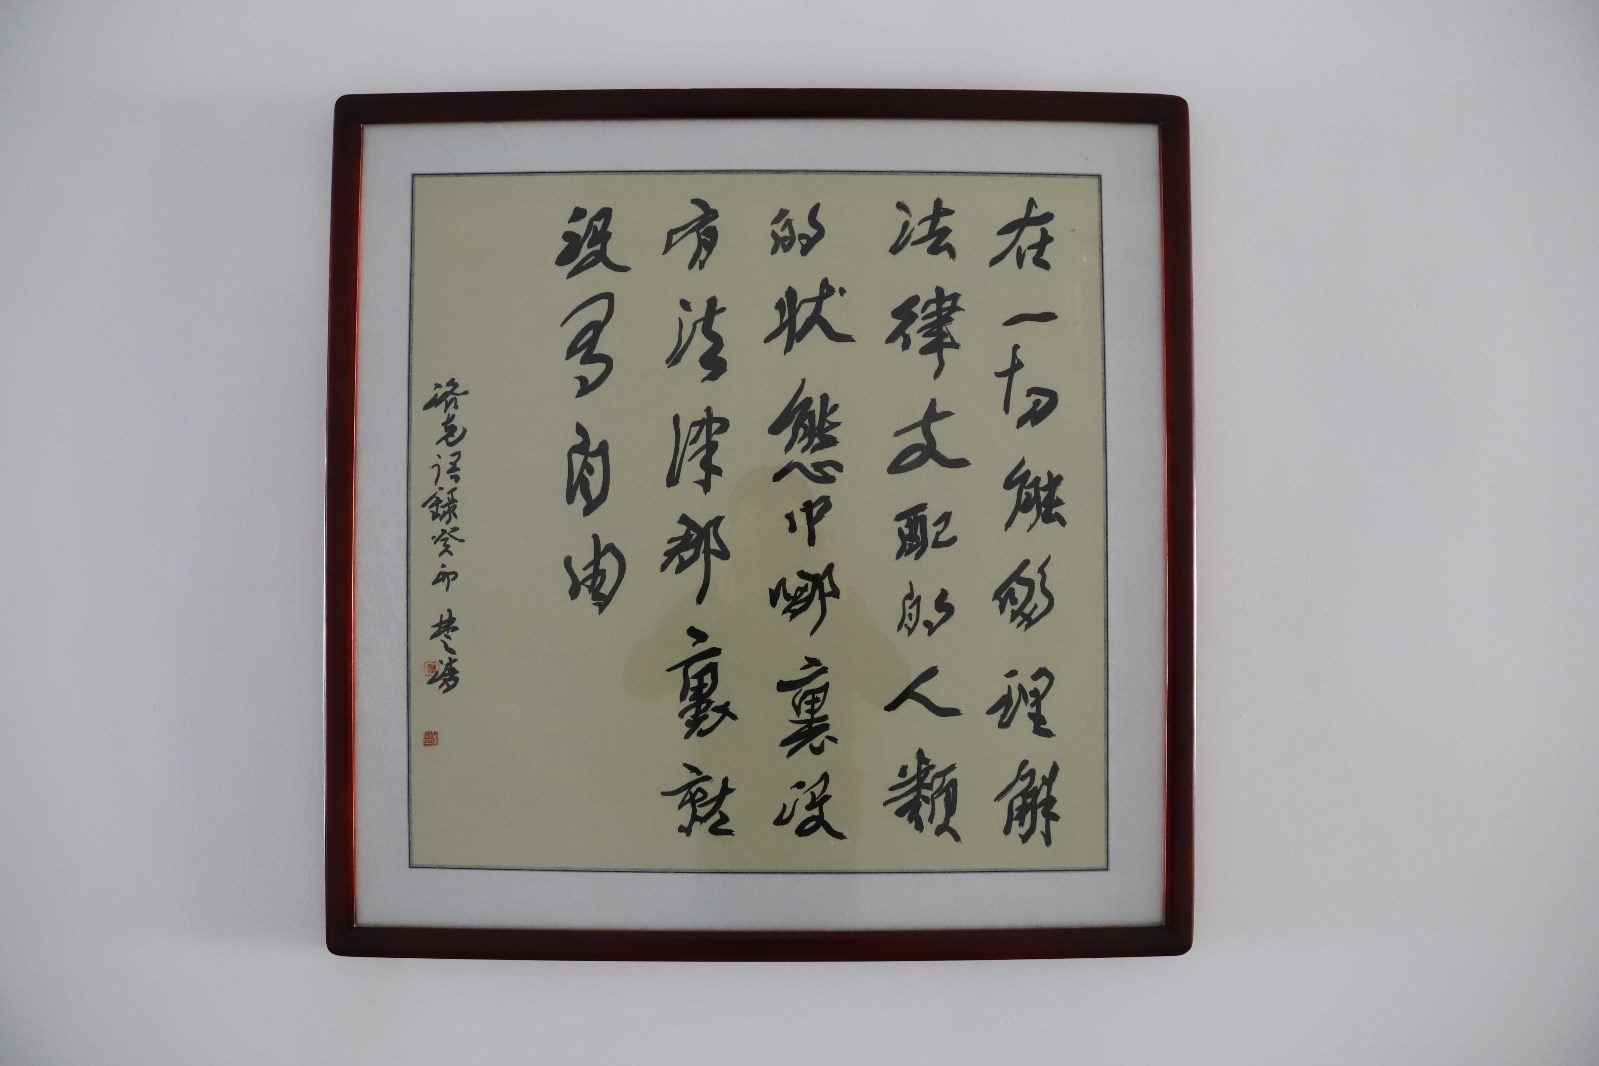 在一切能够理解
法律支配的人类
的状态中哪裏没
有法律那裏就
没有自由
洛克语录癸卯楚涛